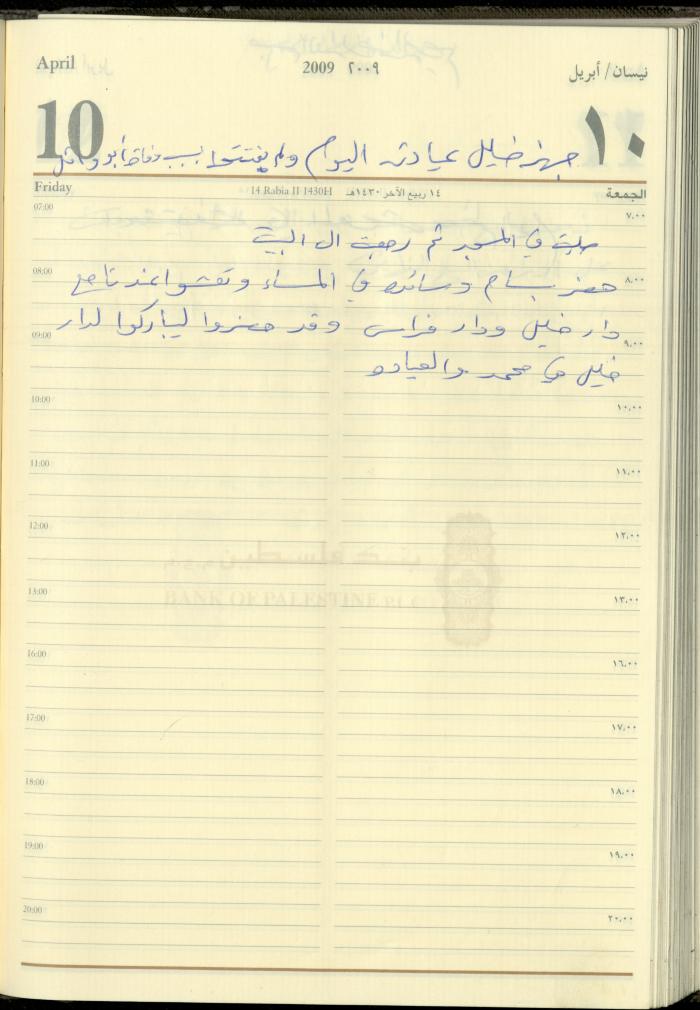 April 2009 ٢٠٠٩ نيسان/ أبريل
10 ١٠
جهز خليل عيادته اليوم ولم يفتتحها بسبب وفاة أبو وائل
Friday 14 Rabia II 1430H ١٤ ربيع الآخر ١٤٣٠هـ الجمعة
07:00 ٧،٠٠
صليت في المسجد ثم رجعت الى البيت
08:00 ٨،٠٠
حضر بسام وسائده في المساء وتعشوا عندنا مع
09:00 ٩،٠٠
دار خليل ودار فراس وقد حضروا ليباركوا لدار
خليل في محمد والعياده
10:00 ١٠،٠٠
11:00 ١١،٠٠
12:00 ١٢،٠٠
بنك فلسطين
13:00 ١٣،٠٠
BANK OF PALESTINE PLC
16:00 ١٦،٠٠
17:00 ١٧،٠٠
18:00 ١٨،٠٠
19:00 ١٩،٠٠
20:00 ٢٠،٠٠